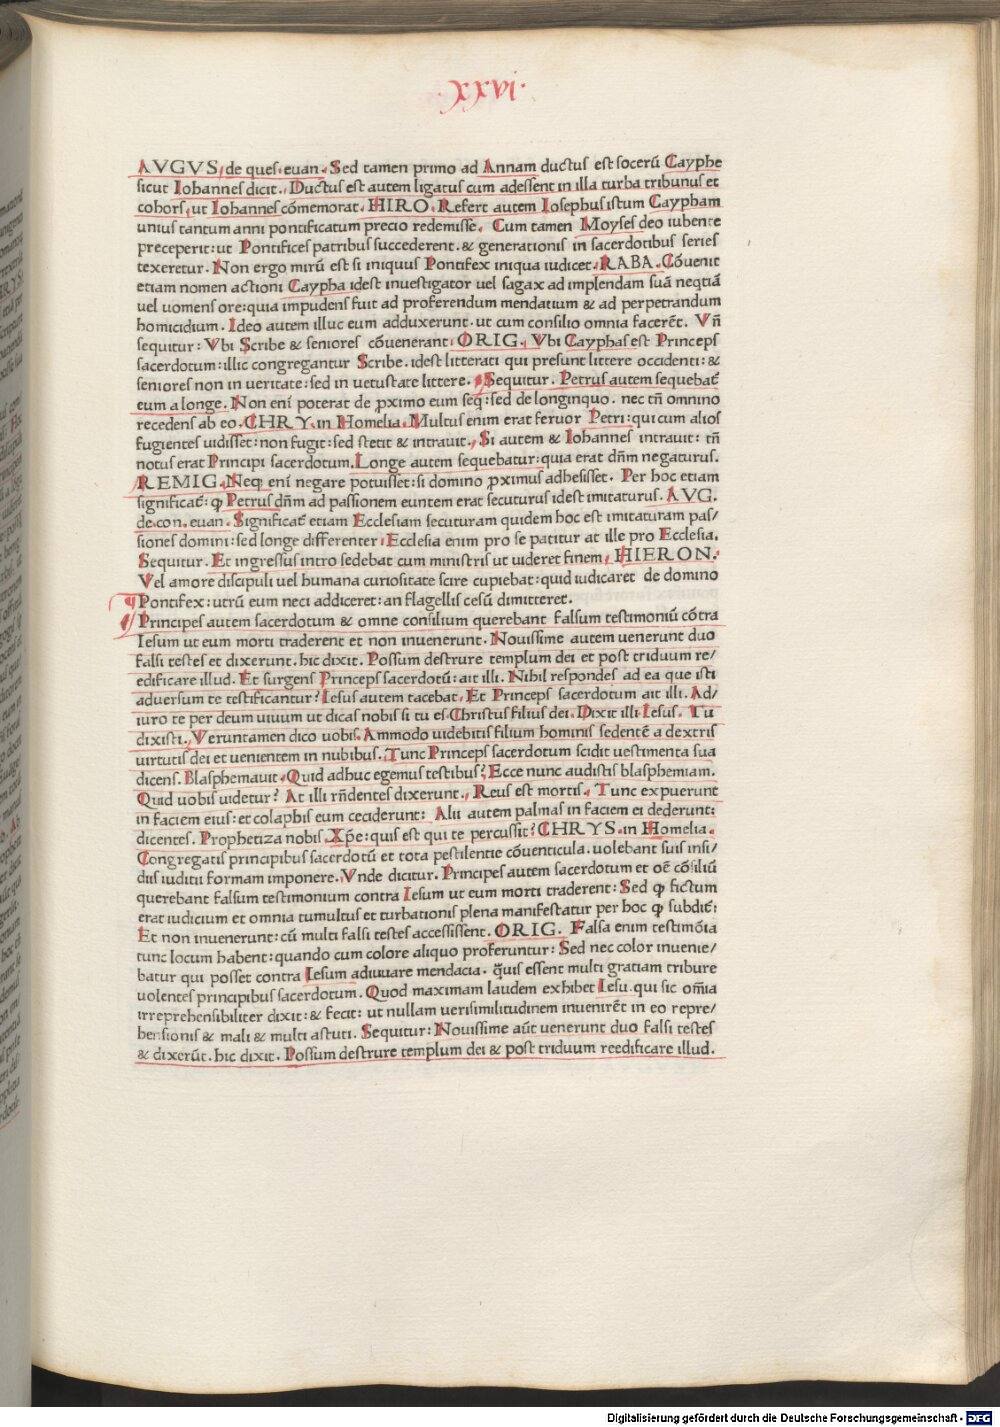 ·xxvi·
AVGVS. de ques. euan. Sed tamen primo ad Annam ductus est socerū Cayphe
sicut Iohannes dicit. Ductus est autem ligatus cum adessent in illa turba tribunus et
cohors, ut Iohannes cōmemorat. HIRO. Refert autem Iosephus istum Caypham
unius tantum anni pontificatum precio redemisse. Cum tamen Moyses deo iubente
preceperit: ut Pontifices patribus succederent. & generationis in sacerdotibus series
texeretur. Non ergo mirū est si iniquus Pontifex iniqua iudicet. RABA. Cōuenit
etiam nomen actioni Caypha idest inuestigator uel sagax ad implendam suā neqtiā
uel uomens ore: quia impudens fuit ad proferendum mendatium & ad perpetrandum
homicidium. Ideo autem illuc eum adduxerunt. ut cum consilio omnia facerēt. Vñ
sequitur: Vbi Scribe & seniores cōuenerant. ORIG. Vbi Cayphas est Princeps
sacerdotum: illic congregantur Scribe. idest litterati qui presunt littere occidenti: &
seniores non in ueritate: sed in uetustate littere. Sequitur. Petrus autem sequebat̄
eum a longe. Non eni poterat de ꝓximo eum seq: sed de longinquo. nec tñ omnino
recedens ab eo. CHRY. in Homelia. Multus enim erat feruor Petri: qui cum alios
fugientes uidisset: non fugit: sed stetit & intrauit. Si autem & Iohannes intrauit: tñ
notus erat Principi sacerdotum. Longe autem sequebatur: quia erat dñm negaturus.
REMIG. Neq; eni negare potuisset: si domino ꝓximus adhesisset. Per hoc etiam
significat̄: ꝙ Petrus dñm ad passionem euntem erat secuturus idest imitaturus. AVG.
de. con. euan. Significat̄ etiam Ecclesiam secuturam quidem hoc est imitaturam pas/
siones domini: sed longe differenter. Ecclesia enim pro se patitur at ille pro Ecclesia.
Sequitur. Et ingressus intro sedebat cum ministris ut uideret finem. HIERON.
Vel amore discipuli uel humana curiositate scire cupiebat: quid iudicaret de domino
Pontifex: utrū eum neci addiceret: an flagellis cesū dimitteret.
Principes autem sacerdotum & omne consilium querebant falsum testimoniū cōtra
Iesum ut eum morti traderent et non inuenerunt. Nouissime autem uenerunt duo
falsi testes et dixerunt. hic dixit. Possum destrure templum dei et post triduum re/
edificare illud. Et surgens Princeps sacerdotū: ait illi. Nihil respondes ad ea que isti
aduersum te testificantur? Iesus autem tacebat. Et Princeps sacerdotum ait illi. Ad/
iuro te per deum uiuum ut dicas nobis si tu es Christus filius dei. Dixit illi Iesus. Tu
dixisti. Veruntamen dico uobis. Ammodo uidebitis filium hominis sedentē a dextris
uirtutis dei et uenientem in nubibus. Tunc Princeps sacerdotum scidit uestimenta sua
dicens. Blasphemauit. Quid adhuc egemus testibus? Ecce nunc audistis blasphemiam.
Quid uobis uidetur? At illi rñdentes dixerunt. Reus est mortis. Tunc expuerunt
in faciem eius: et colaphis eum ceciderunt: Alii autem palmas in faciem ei dederunt:
dicentes. Prophetiza nobis. Xp̄e: quis est qui te percussit? CHRYS. in Homelia.
Congregatis principibus sacerdotū et tota pestilentie cōuenticula. uolebant suis insi/
diis iuditii formam imponere. Vnde dicitur. Principes autem sacerdotum et oē cōsiliū
querebant falsum testimonium contra Iesum ut eum morti traderent: Sed ꝙ fictum
erat iudicium et omnia tumultus et turbationis plena manifestatur per hoc ꝙ subdit̄:
Et non inuenerunt: cū multi falsi testes accessissent. ORIG. Falsa enim testimōia
tunc locum habent: quando cum colore aliquo proferuntur: Sed nec color inuenie/
batur qui posset contra Iesum adiuuare mendacia. q̄uis essent multi gratiam tribure
uolentes principibus sacerdotum. Quod maximam laudem exhibet Iesu. qui sic om̄ia
irreprehensibiliter dixit: & fecit: ut nullam uerisimilitudinem inuenirēt in eo repre/
hensionis & mali & multi astuti. Sequitur: Nouissime aūt uenerunt duo falsi testes
& dixerūt. hic dixit. Possum destrure templum dei & post triduum reedificare illud.
Digitalisierung gefördert durch die Deutsche Forschungsgemeinschaft - DFG